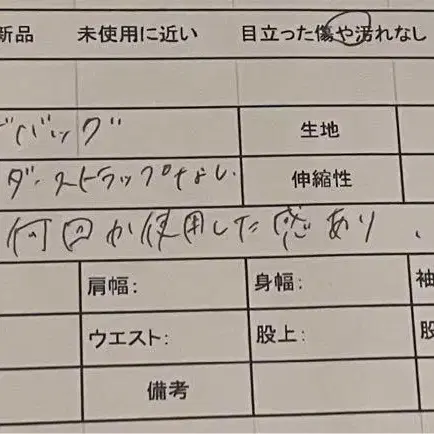 新品 未使用に近い 目立った傷や汚れなし
ドバッグ 生地
ダーストラップなし 伸縮性
何回か使用した感あり、
肩幅: 身幅: 袖
ウエスト: 股上: 股
備考